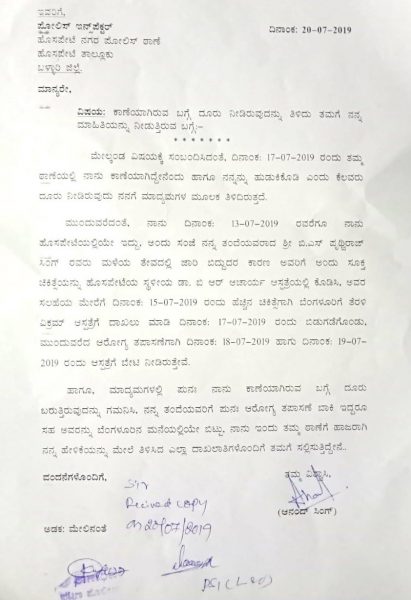 ಇವರಿಗೆ,
ಪೊಲೀಸ್ ಇನ್ಸ್‌ಪೆಕ್ಟರ್
ದಿನಾಂಕ: 20-07-2019
ಹೊಸಪೇಟೆ ನಗರ ಪೊಲೀಸ್ ಠಾಣೆ
ಹೊಸಪೇಟೆ ತಾಲ್ಲೂಕು
ಬಳ್ಳಾರಿ ಜಿಲ್ಲೆ.
ಮಾನ್ಯರೇ,
ವಿಷಯ: ಕಾಣೆಯಾಗಿರುವ ಬಗ್ಗೆ ದೂರು ನೀಡಿರುವುದನ್ನು ತಿಳಿದು ತಮಗೆ ನನ್ನ
ಮಾಹಿತಿಯನ್ನು ನೀಡುತ್ತಿರುವ ಬಗ್ಗೆ:-
* * * * * * *
ಮೇಲ್ಕಂಡ ವಿಷಯಕ್ಕೆ ಸಂಬಂದಿಸಿದಂತೆ, ದಿನಾಂಕ: 17-07-2019 ರಂದು ತಮ್ಮ
ಠಾಣೆಯಲ್ಲಿ ನಾನು ಕಾಣೆಯಾಗಿದ್ದೇನೆಂದು ಹಾಗೂ ನನ್ನನ್ನು ಹುಡುಕಿಕೊಡಿ ಎಂದು ಕೆಲವರು
ದೂರು ನೀಡಿರುವುದು ನನಗೆ ಮಾದ್ಯಮಗಳ ಮೂಲಕ ತಿಳಿದಿರುತ್ತದೆ.
ಮುಂದುವರೆದಂತೆ, ನಾನು ದಿನಾಂಕ: 13-07-2019 ರವರೆಗೂ ನಾನು
ಹೊಸಪೇಟೆಯಲ್ಲಿಯೇ ಇದ್ದು, ಅಂದು ಸಂಜೆ ನನ್ನ ತಂದೆಯವರಾದ ಶ್ರೀ ಬಿ.ಎಸ್ ಪೃಥ್ವಿರಾಜ್
ಸಿಂಗ್ ರವರು ಮಳೆಯ ತೇವದಲ್ಲಿ ಜಾರಿ ಬಿದ್ದುದರ ಕಾರಣ ಅವರಿಗೆ ಅಂದು ಸೂಕ್ತ
ಚಿಕಿತ್ಸೆಯನ್ನು ಹೊಸಪೇಟೆಯ ಸ್ಥಳೀಯ ಡಾ. ಬಿ ಆರ್ ಆಚಾರ್ಯ ಆಸ್ಪತ್ರೆಯಲ್ಲಿ ಕೊಡಿಸಿ, ಅವರ
ಸಲಹೆಯ ಮೇರೆಗೆ ದಿನಾಂಕ: 15-07-2019 ರಂದು ಹೆಚ್ಚಿನ ಚಿಕಿತ್ಸೆಗಾಗಿ ಬೆಂಗಳೂರಿಗೆ ತೆರಳಿ
ವಿಕ್ರಮ್ ಆಸ್ಪತ್ರೆಗೆ ದಾಖಲು ಮಾಡಿ ದಿನಾಂಕ: 17-07-2019 ರಂದು ಬಿಡುಗಡೆಗೊಂಡು,
ಮುಂದುವರೆದ ಆರೋಗ್ಯ ತಪಾಸಣೆಗಾಗಿ ದಿನಾಂಕ: 18-07-2019 ಹಾಗು ದಿನಾಂಕ: 19-07-
2019 ರಂದು ಆಸ್ಪತ್ರೆಗೆ ಬೇಟಿ ನೀಡಿರುತ್ತೇವೆ.
ಹಾಗೂ, ಮಾದ್ಯಮಗಳಲ್ಲಿ ಪುನಃ ನಾನು ಕಾಣೆಯಾಗಿರುವ ಬಗ್ಗೆ ದೂರು
ಬರುತ್ತಿರುವುದನ್ನು ಗಮನಿಸಿ, ನನ್ನ ತಂದೆಯವರಿಗೆ ಪುನಃ ಆರೋಗ್ಯ ತಪಾಸಣೆ ಬಾಕಿ ಇದ್ದರೂ
ಸಹ ಅವರನ್ನು ಬೆಂಗಳೂರಿನ ಮನೆಯಲ್ಲಿಯೇ ಬಿಟ್ಟು, ನಾನು ಇಂದು ತಮ್ಮ ಠಾಣೆಗೆ ಹಾಜರಾಗಿ
ನನ್ನ ಹೇಳಿಕೆಯನ್ನು ಮೇಲೆ ತಿಳಿಸಿದ ಎಲ್ಲಾ ದಾಖಲಾತಿಗಳೊಂದಿಗೆ ತಮಗೆ ಸಲ್ಲಿಸುತ್ತಿದ್ದೇನೆ..
ವಂದನೆಗಳೊಂದಿಗೆ,
ತಮ್ಮ ವಿಶ್ವಾಸಿ,
Sir
Recived copy
(ಆನಂದ್ ಸಿಂಗ್)
ಅಡಕ: ಮೇಲಿನಂತೆ
20/07/2019
PSI (L&O)